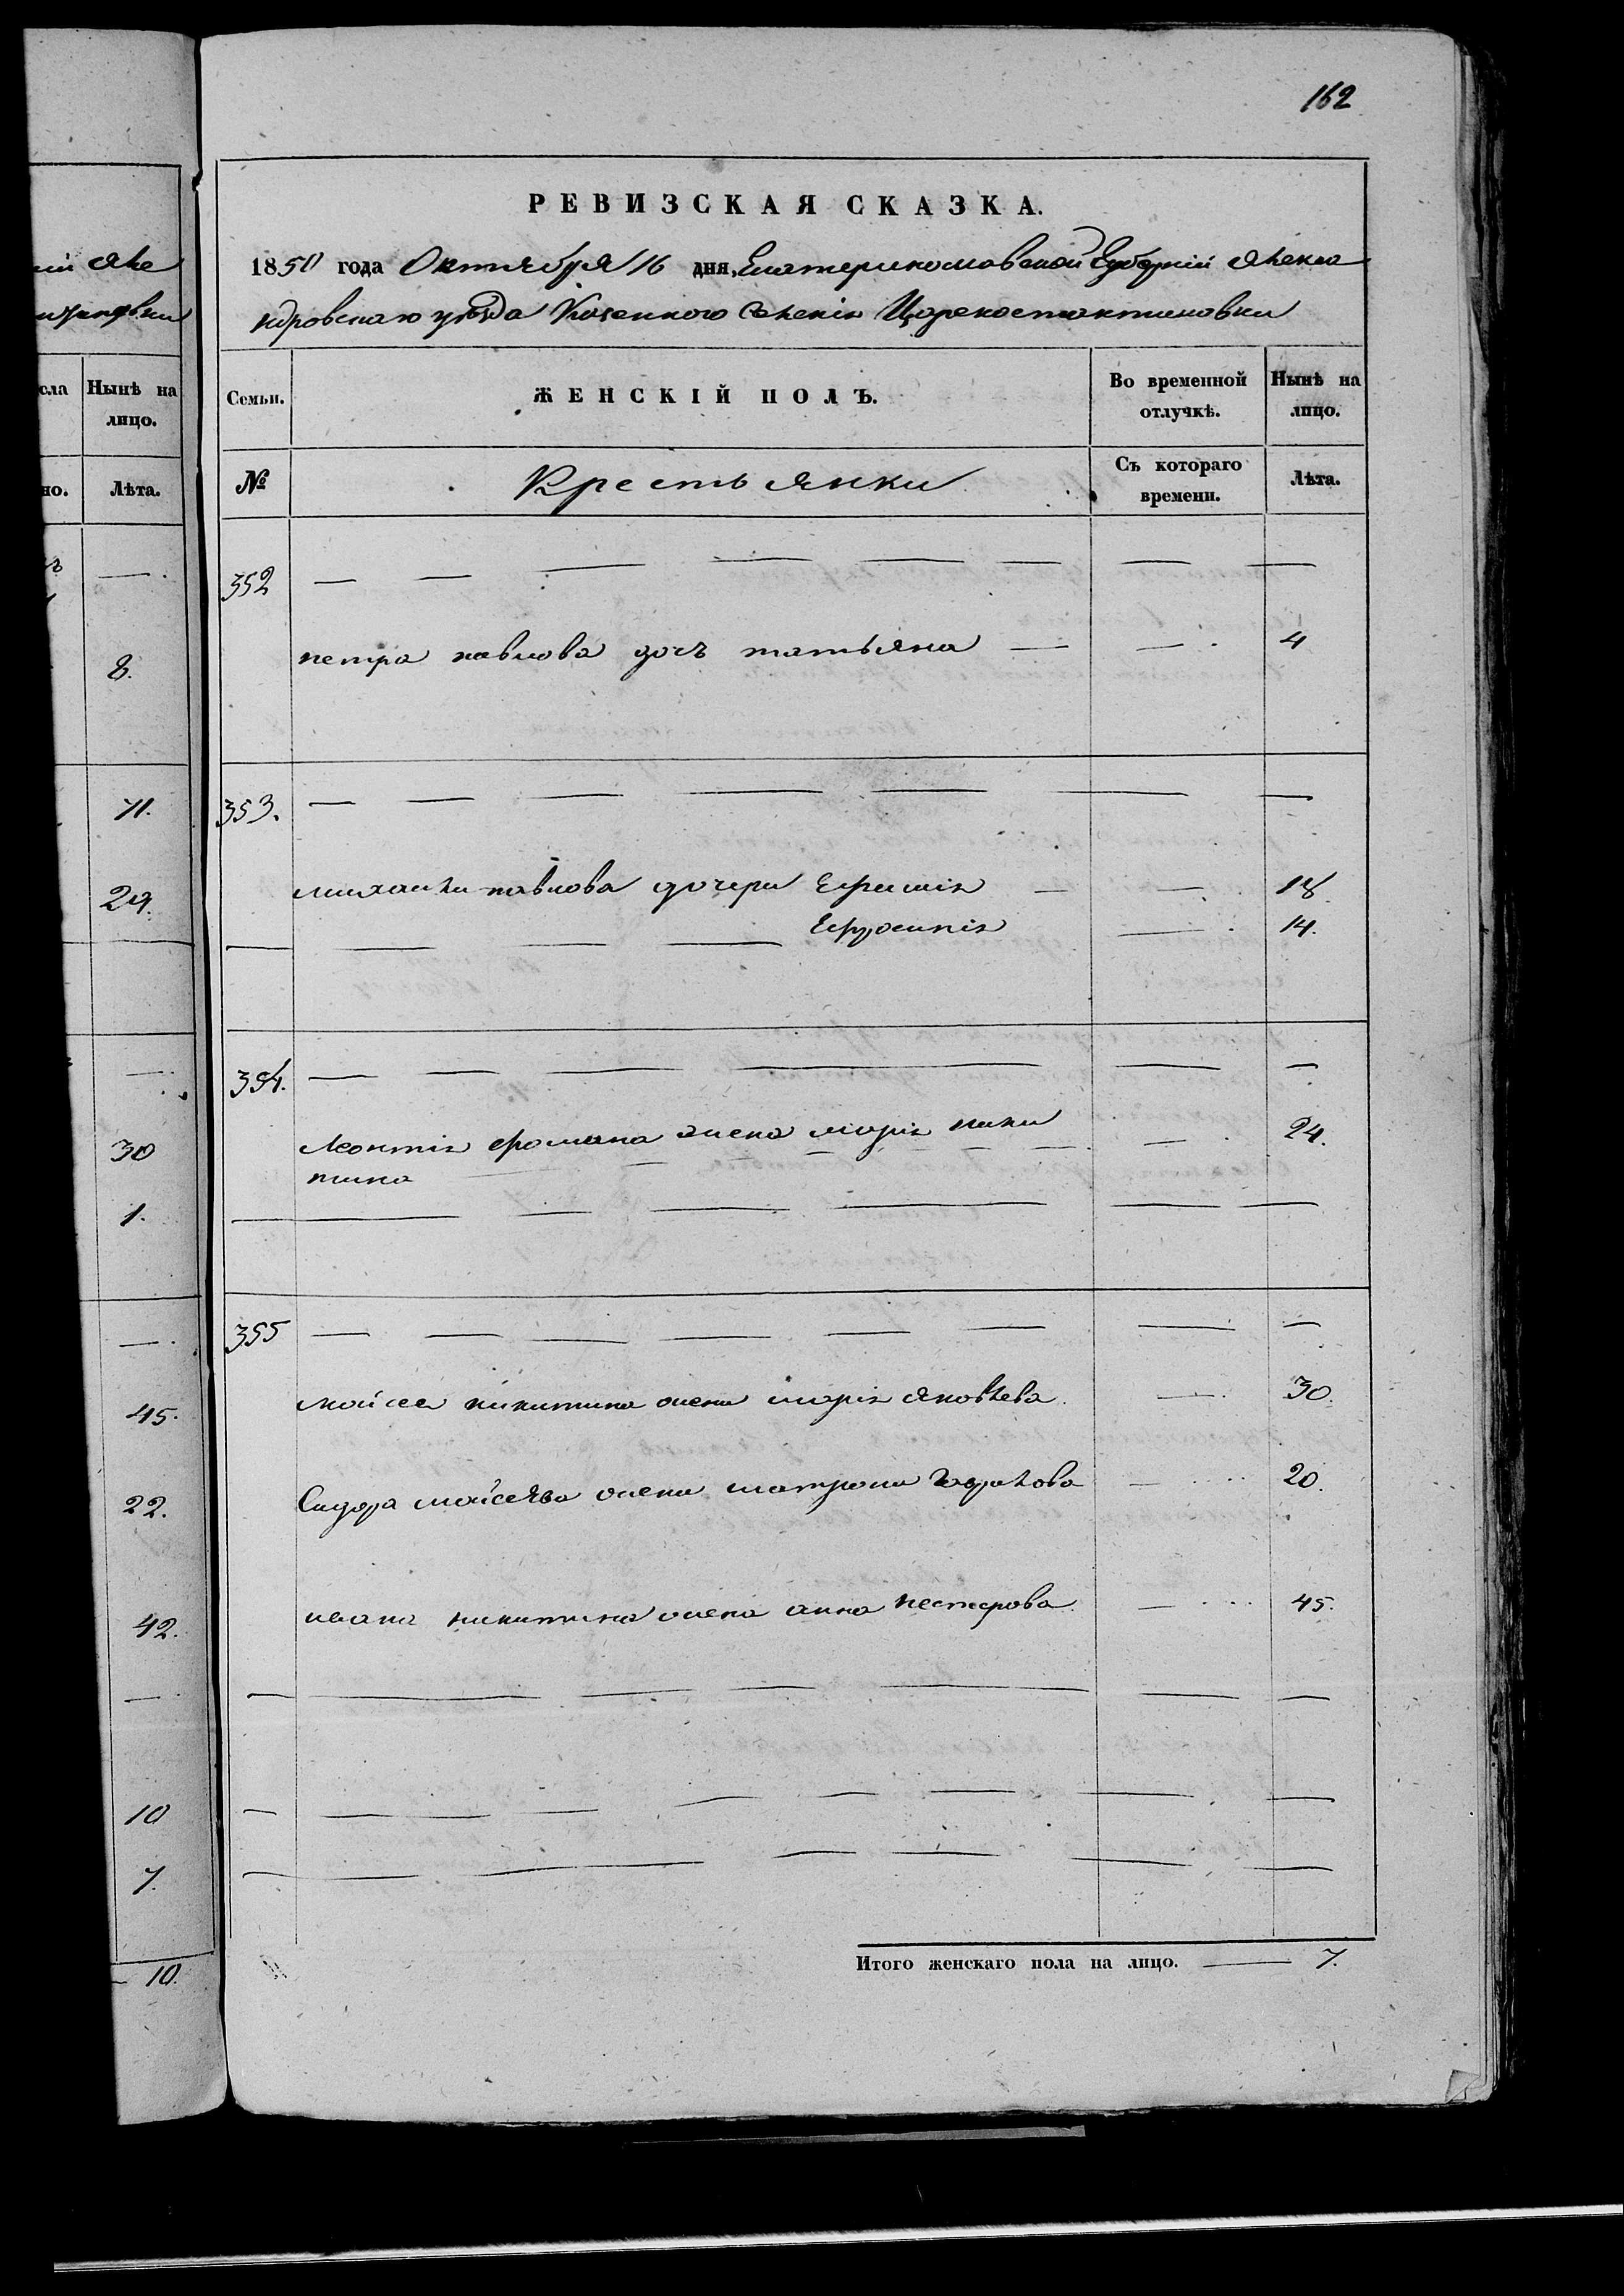 162
РЕВИЗСКАЯ СКАЗКА.
1850 года Октября 16 дня, Екатеринославской Губерніи Алекса
ндровскаго уѣзда Казенного Селенія Цареконстантиновки
Семьи. ЖЕНСКІЙ ПОЛЪ. Во временной отлучкѣ. Нынѣ на лицо.
№ Крестьянки Съ котораго времени. Лѣта.
352
петра павлова дочь татьяна 4
353.
михаила павлова дочери Ефимія 18
Ефросинія 14.
354.
Леонтія романа жена марія ники 24.
тина
355
мойсея никитина жена марія яковлева 30.
Сидора мойсеява жена матрона Гаврилова 20.
ивана никитина жена анна нестерова 45.
Итого женскаго пола на лицо. 7.
сла Нынѣ на лицо.
но. Лѣта.
8.
71.
29.
30
1.
45.
22.
42.
10
7.
10.